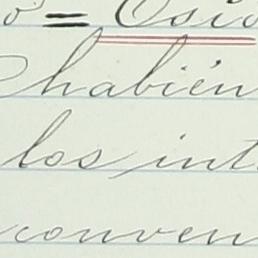 o = Osio
habién
los int
conven